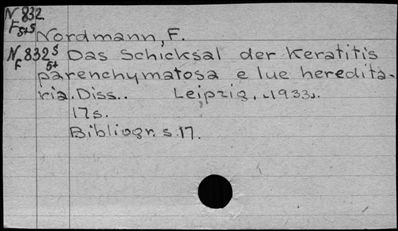 N 832
F 5+5
Nordmann, F.
N 832 S Das Schicksal der Keratitis
F 5+ parenchymatosa e lue heredita-
ria. Diss.. Leipzig, 1933.
17s.
Bibliogr. s. 17.